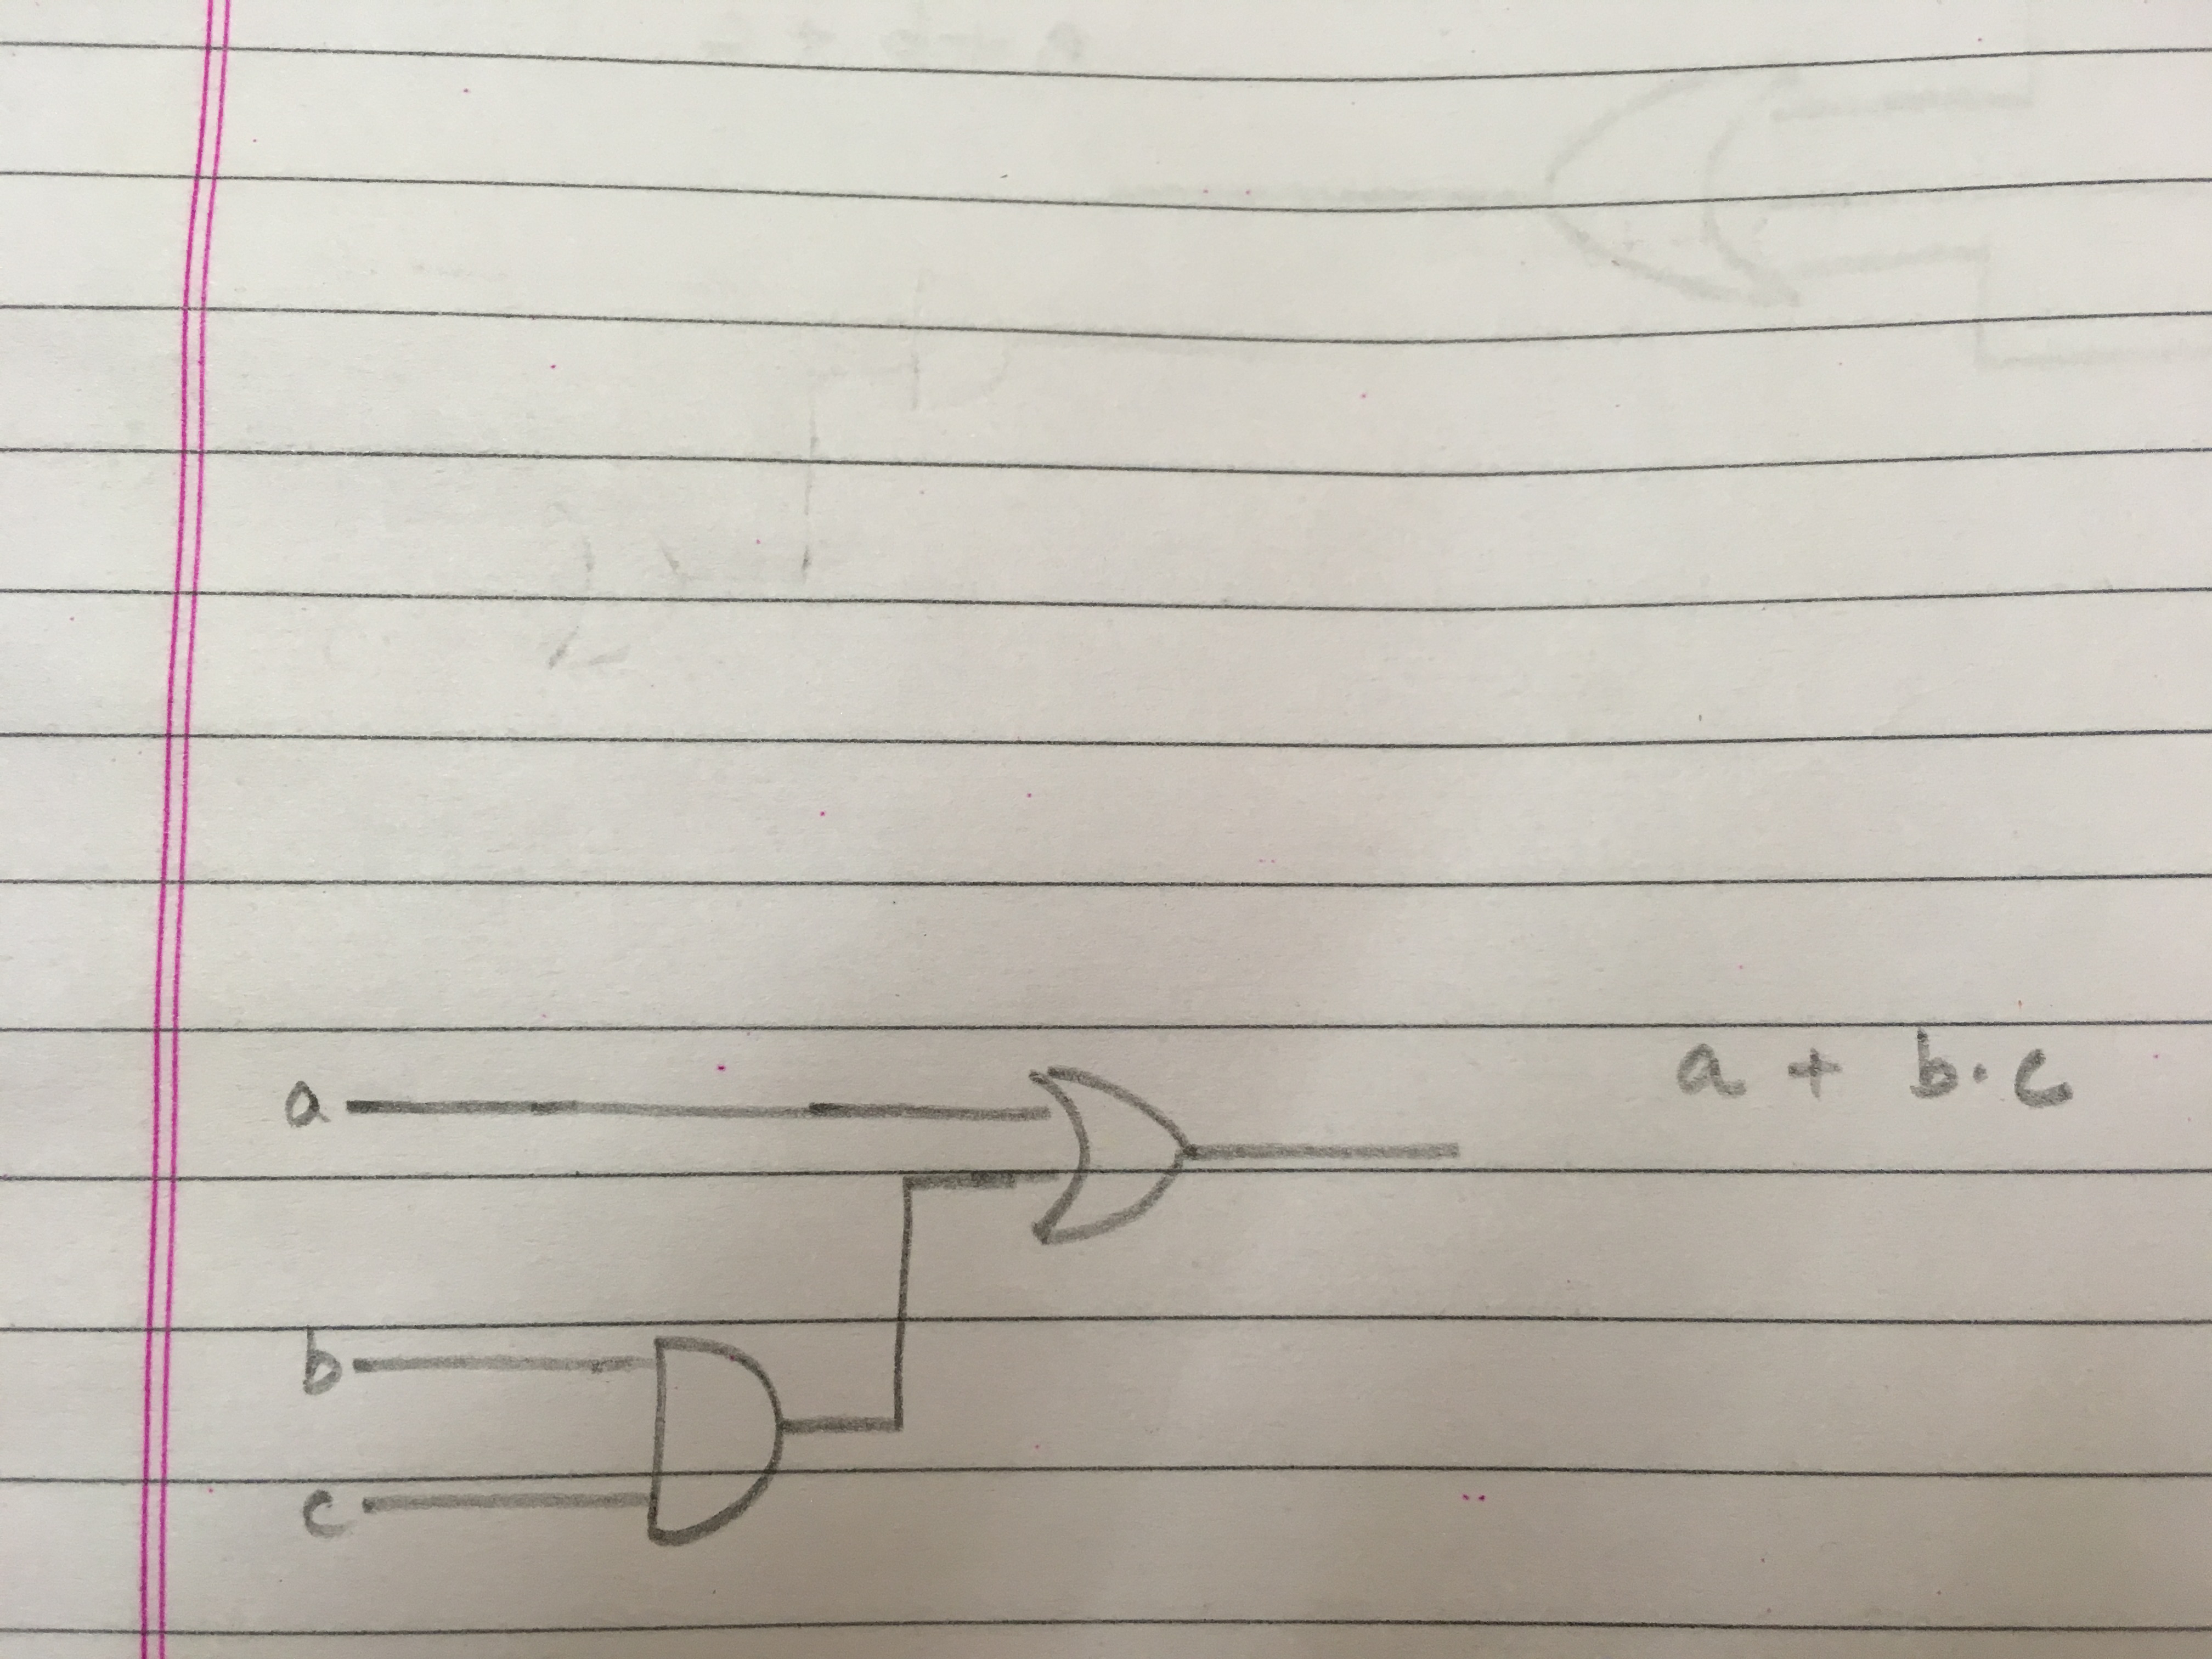 a
b
c
a + b.c